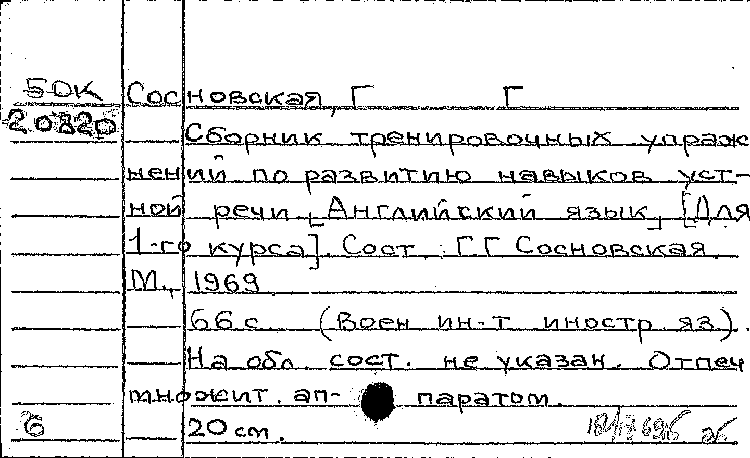 БОК Сосновская, Г Г
20820
Сборник тренировочных упраж
нений по развитию навыков уст-
ной речи [Английский язык] [Для
1-го курса]. Сост. Г Г Сосновская.
М., 1969
66 с. (Воен ин-т иностр яз).
На обл. сост. не указан. Отпеч
множит. ап- паратом.
6 20 см.